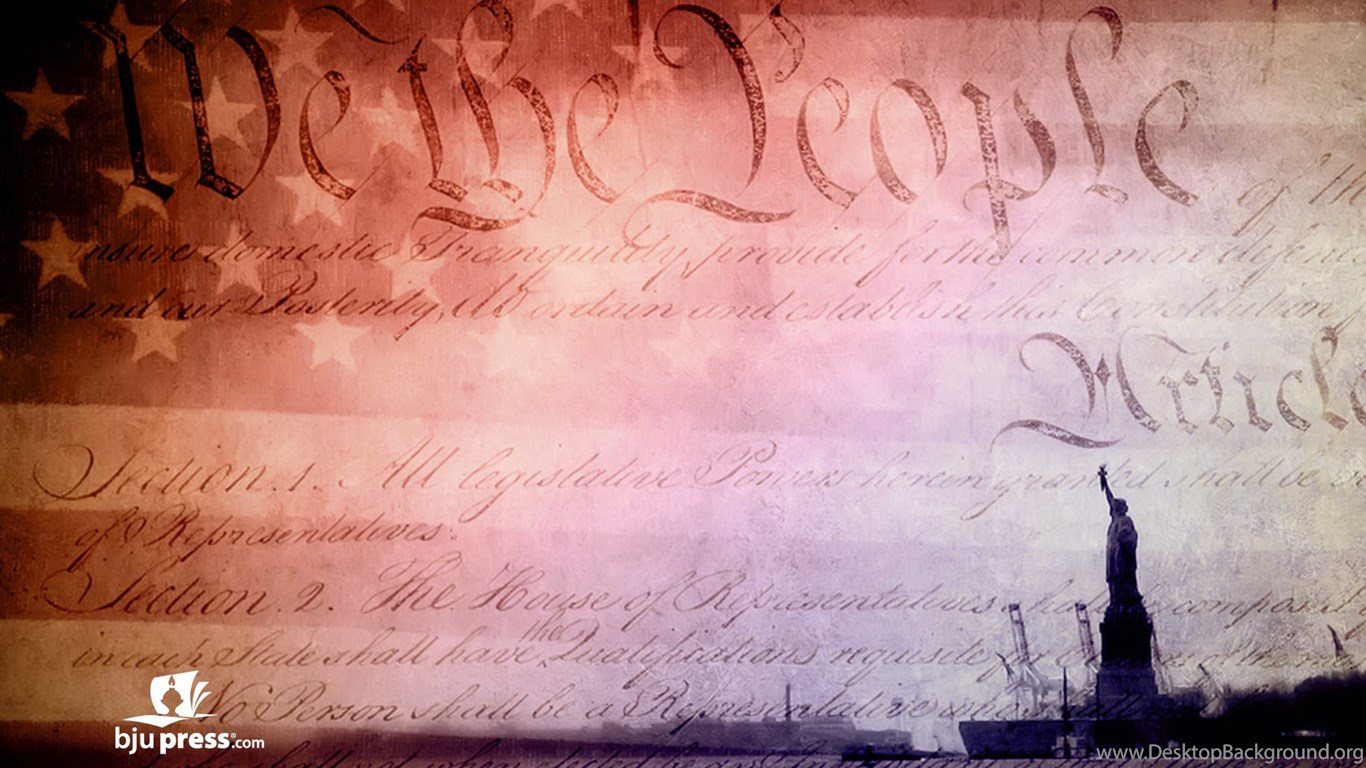 We the People of th
nsure domestic Tranquility, provide for the common defence
and our Posterity, do ordain and establish this Constitution f
Article
Section. 1. All legislative Powers herein granted shall be
of Representatives.
Section. 2. The House of Representatives shall be composed
the
in each State shall have Qualifications requisite
No Person shall be a Representative who shall
bjupress.com
www.DesktopBackground.org